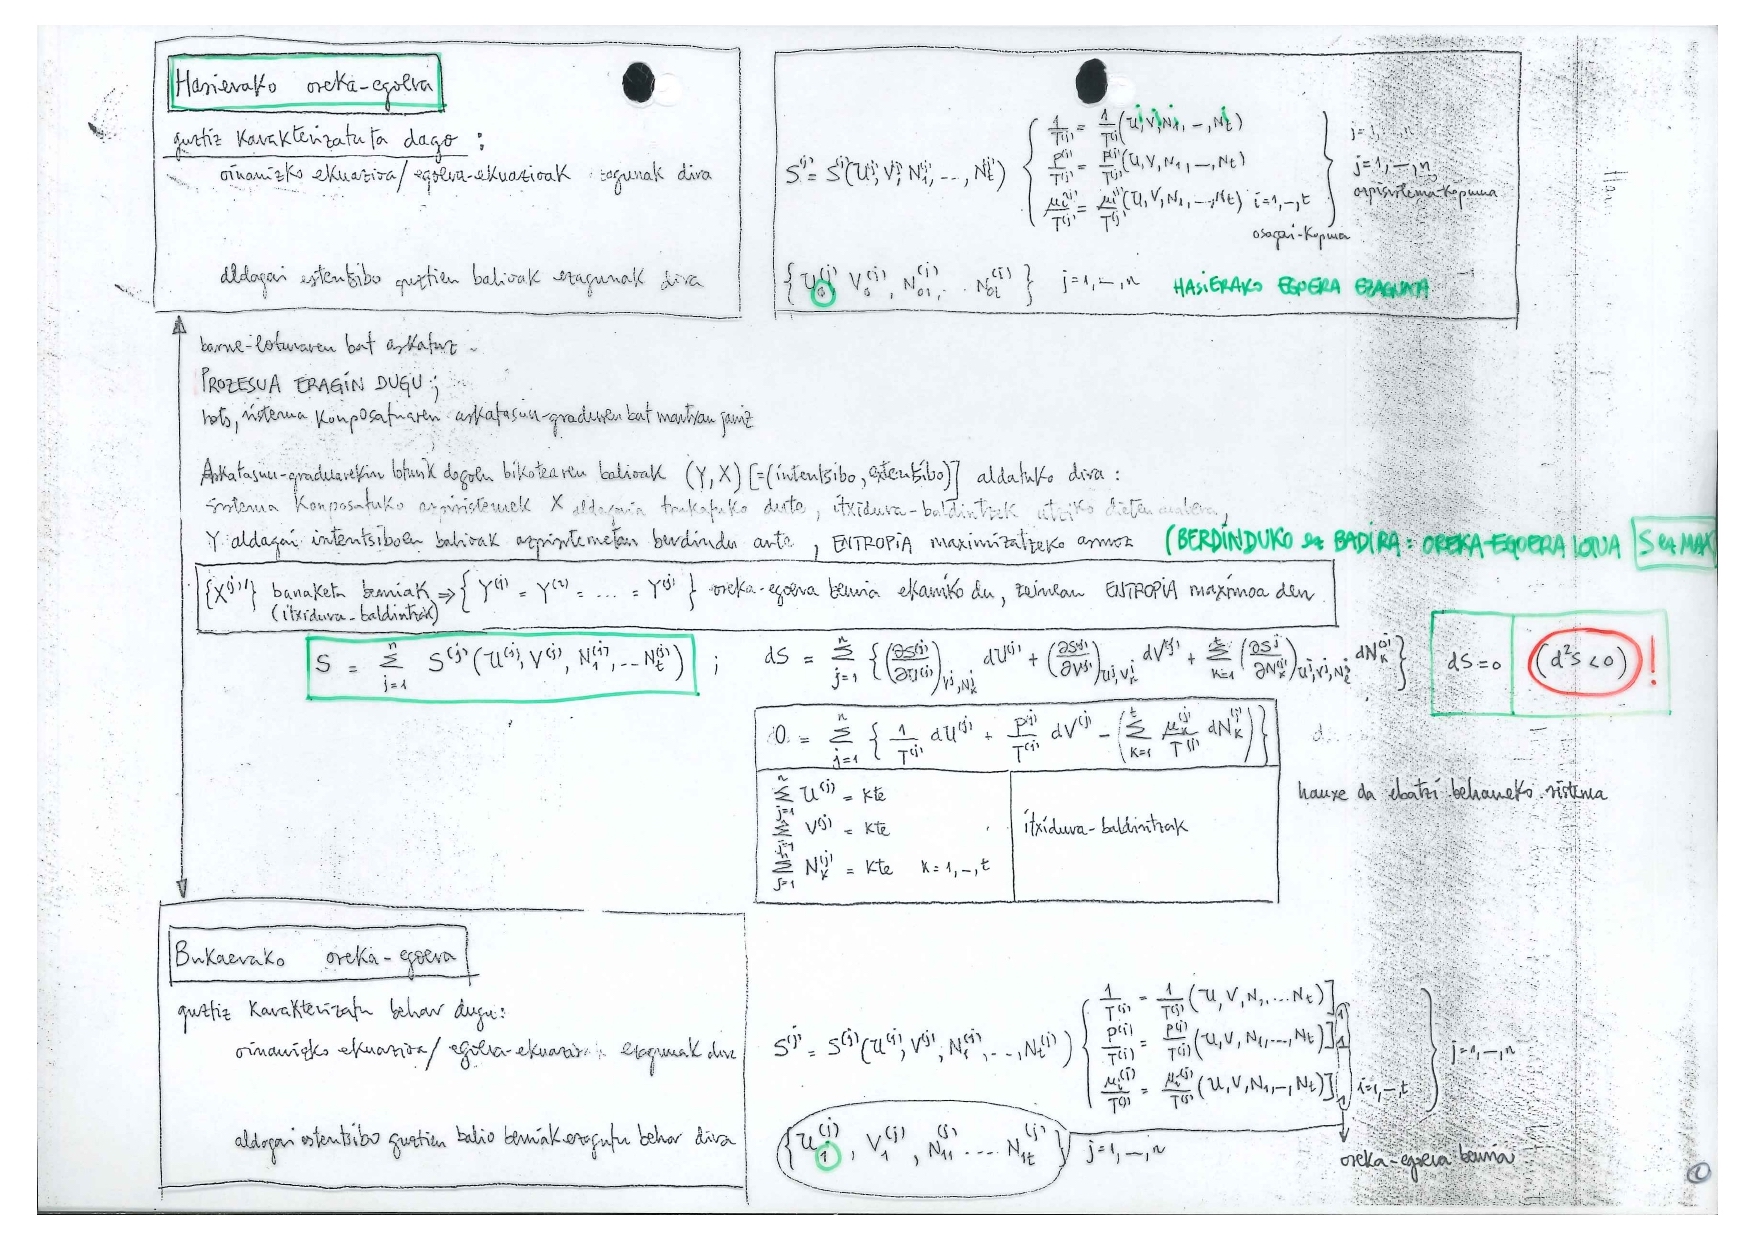 Hasierako oreka-egoera
guztiz karakterizatuta dago :
oinarrizko ekuazioa/ egoera-ekuazioak ezagunak dira
aldagai estentsibo guztien balioak ezagunak dira
S^(j) = S^(j)(U^(j), V^(j), N_1^(j), ..., N_t^(j))
1/T^(j) = 1/T^(j) (U, V, N_1, -, N_t)
P^(j)/T^(j) = P^(j)/T^(j) (U, V, N_1, -, N_t)
μ_i^(j)/T^(j) = μ_i^(j)/T^(j) (U, V, N_1, -, N_t) i=1,-,t
osagai-kopurua
j=1,-,n
azpisistema-kopurua
{U_0^(j), V_0^(j), N_01^(j), .. N_0t^(j)} j=1,-,n HASIERAKO EGOERA EZAGUNA
barne-loturaren bat askatuz
PROZESUA ERAGIN DUGU ;
hots, sistema konposatuaren askatasun-graduren bat martxan jarriz
Askatasun-graduarekin loturik dagoen bikotearen balioak (Y, X) [=(intentsibo, estentsibo)] aldatuko dira :
sistema konposatuko azpisistemek X aldagaia trukatuko dute, itxidura-baldintzek utziko dieten arabera,
Y aldagai intentsiboen balioak azpisistemetan berdindu arte, ENTROPIA maximizatzeko asmoz (BERDINDUKO ez BADIRA : OREKA-EGOERA LOTUA S ez MAX
{X^(j)'} banaketa berriak ⇒ {Y^(j) = Y^(2) = ... = Y^(j)} oreka-egoera berria ekarriko du, zeinean ENTROPIA maximoa den
(itxidura-baldintzak)
S = Σ_{j=1}^{n} S^(j)(U^(j), V^(j), N_1^(j), ... N_t^(j)) ;
dS = Σ_{j=1}^{n} {(∂S^(j)/∂U^(j))_{V^j,N_k^j} dU^(j) + (∂S^(j)/∂V^j)_{U^j,V_k^j} dV^(j) + Σ_{k=1}^{t} (∂S^j/∂N_k^(j))_{U^j,V^j,N_t^j} dN_k^(j)}
dS=0 (d²S<0) !
0 = Σ_{j=1}^{n} {1/T^(j) dU^(j) + P^(j)/T^(j) dV^(j) - (Σ_{k=1}^{t} μ_k^(j)/T^(j) dN_k^(j))}
Σ_{j=1}^{n} U^(j) = kte
Σ V^(j) = kte
Σ_{j=1}^{n} N_k^(j) = kte k=1,-,t
itxidura-baldintzak
hauxe da ebatzi beharreko sistema
Bukaerako oreka-egoera
guztiz karakterizatu behar dugu:
oinarrizko ekuazioa/ egoera-ekuazioak ezagunak dira
aldagai estentsibo guztien balio berriak ezagutu behar dira
S^(j) = S^(j)(U^(j), V^(j), N_1^(j), ..., N_t^(j))
1/T^(j) = 1/T^(j) (U, V, N_1, ... N_t)]_1
P^(j)/T^(j) = P^(j)/T^(j) (U, V, N_1, ..., N_t)]_1
μ_i^(j)/T^(j) = μ_i^(j)/T^(j) (U, V, N_1, -, N_t)]_1 i=1,-,t
j=1,-,n
{U_1^(j), V_1^(j), N_11^(j) .... N_1t^(j)} j=1,-,n
oreka-egoera berria